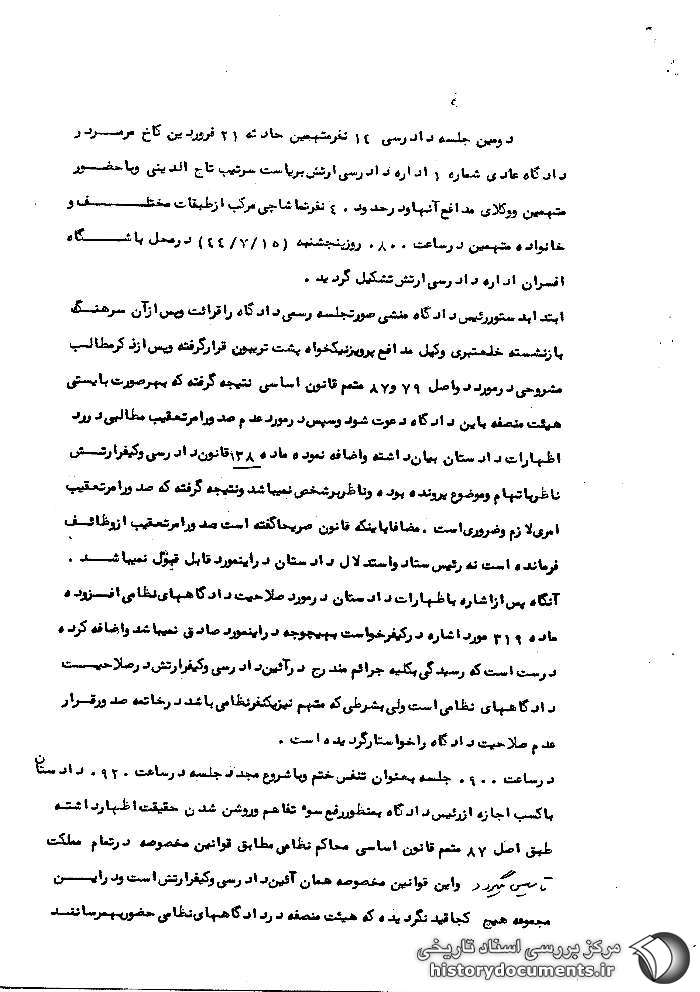 دومین جلسه دادرسی ۱۴ نفر متهمین حادثه ۲۱ فروردین کاخ مرمر در
دادگاه عادی شماره ۱ اداره دادرسی ارتش بریاست سرتیپ تاج الدینی و با حضور
متهمین و وکلای مدافع آنها و در حدود ۴۰ نفر تماشاچی مرکب از طبقات مختلف و
خانواده متهمین در ساعت ۸۰۰ روز پنجشنبه (۴۴/۷/۱۵) در محل باشگاه
افسران اداره دادرسی ارتش تشکیل گردید .
ابتدا بدستور رئیس دادگاه منشی صورتجلسه رسمی دادگاه را قرائت و پس از آن سرهنگ
بازنشسته خلعتبری وکیل مدافع پرویز نیکخواه پشت تریبون قرار گرفته و پس از ذکر مطالب
مشروحی در مورد دو اصل ۷۹ و ۸۷ متمم قانون اساسی نتیجه گرفته که بهر صورت بایستی
هیئت منصفه باین دادگاه دعوت شود و سپس در مورد عدم صدور امر تعقیب مطالبی در رد
اظهارات دادستان بیان داشته و اضافه نموده ماده ۱۳۸ قانون دادرسی و کیفر ارتش
ناظر باتهام و موضوع پرونده بوده و ناظر بر شخص نمیباشد و نتیجه گرفته که صدور امر تعقیب
امری لازم و ضروری است . مضافا باینکه قانون صریحا گفته است صدور امر تعقیب از وظائف
فرمانده است نه رئیس ستاد و استدلال دادستان در اینمورد قابل قبول نمیباشد .
آنگاه پس از اشاره باظهارات دادستان در مورد صلاحیت دادگاههای نظامی افزوده
ماده ۳۱۹ مورد اشاره در کیفرخواست بهیچوجه در اینمورد صادق نمیباشد و اضافه کرده
درست است که رسیدگی بکلیه جرائم مندرج در آئین دادرسی و کیفر ارتش در صلاحیت
دادگاههای نظامی است ولی بشرطی که متهم نیز یکنفر نظامی باشد در خاتمه صدور قرار
عدم صلاحیت دادگاه را خواستار گردیده است .
در ساعت ۹۰۰ جلسه بعنوان تنفس ختم و با شروع مجدد جلسه در ساعت ۹۲۰ دادستان
با کسب اجازه از رئیس دادگاه بمنظور رفع سوء تفاهم و روشن شدن حقیقت اظهار داشته
طبق اصل ۸۷ متمم قانون اساسی محاکم نظامی مطابق قوانین مخصوصه در تمام مملکت
تاسیس میگردد و این قوانین مخصوصه همان آئین دادرسی و کیفر ارتش است و در این
مجموعه هیچ کجا قید نگردیده که هیئت منصفه در دادگاههای نظامی حضور بهم رسانند
مرکز بررسی اسناد تاریخی
historydocuments.ir